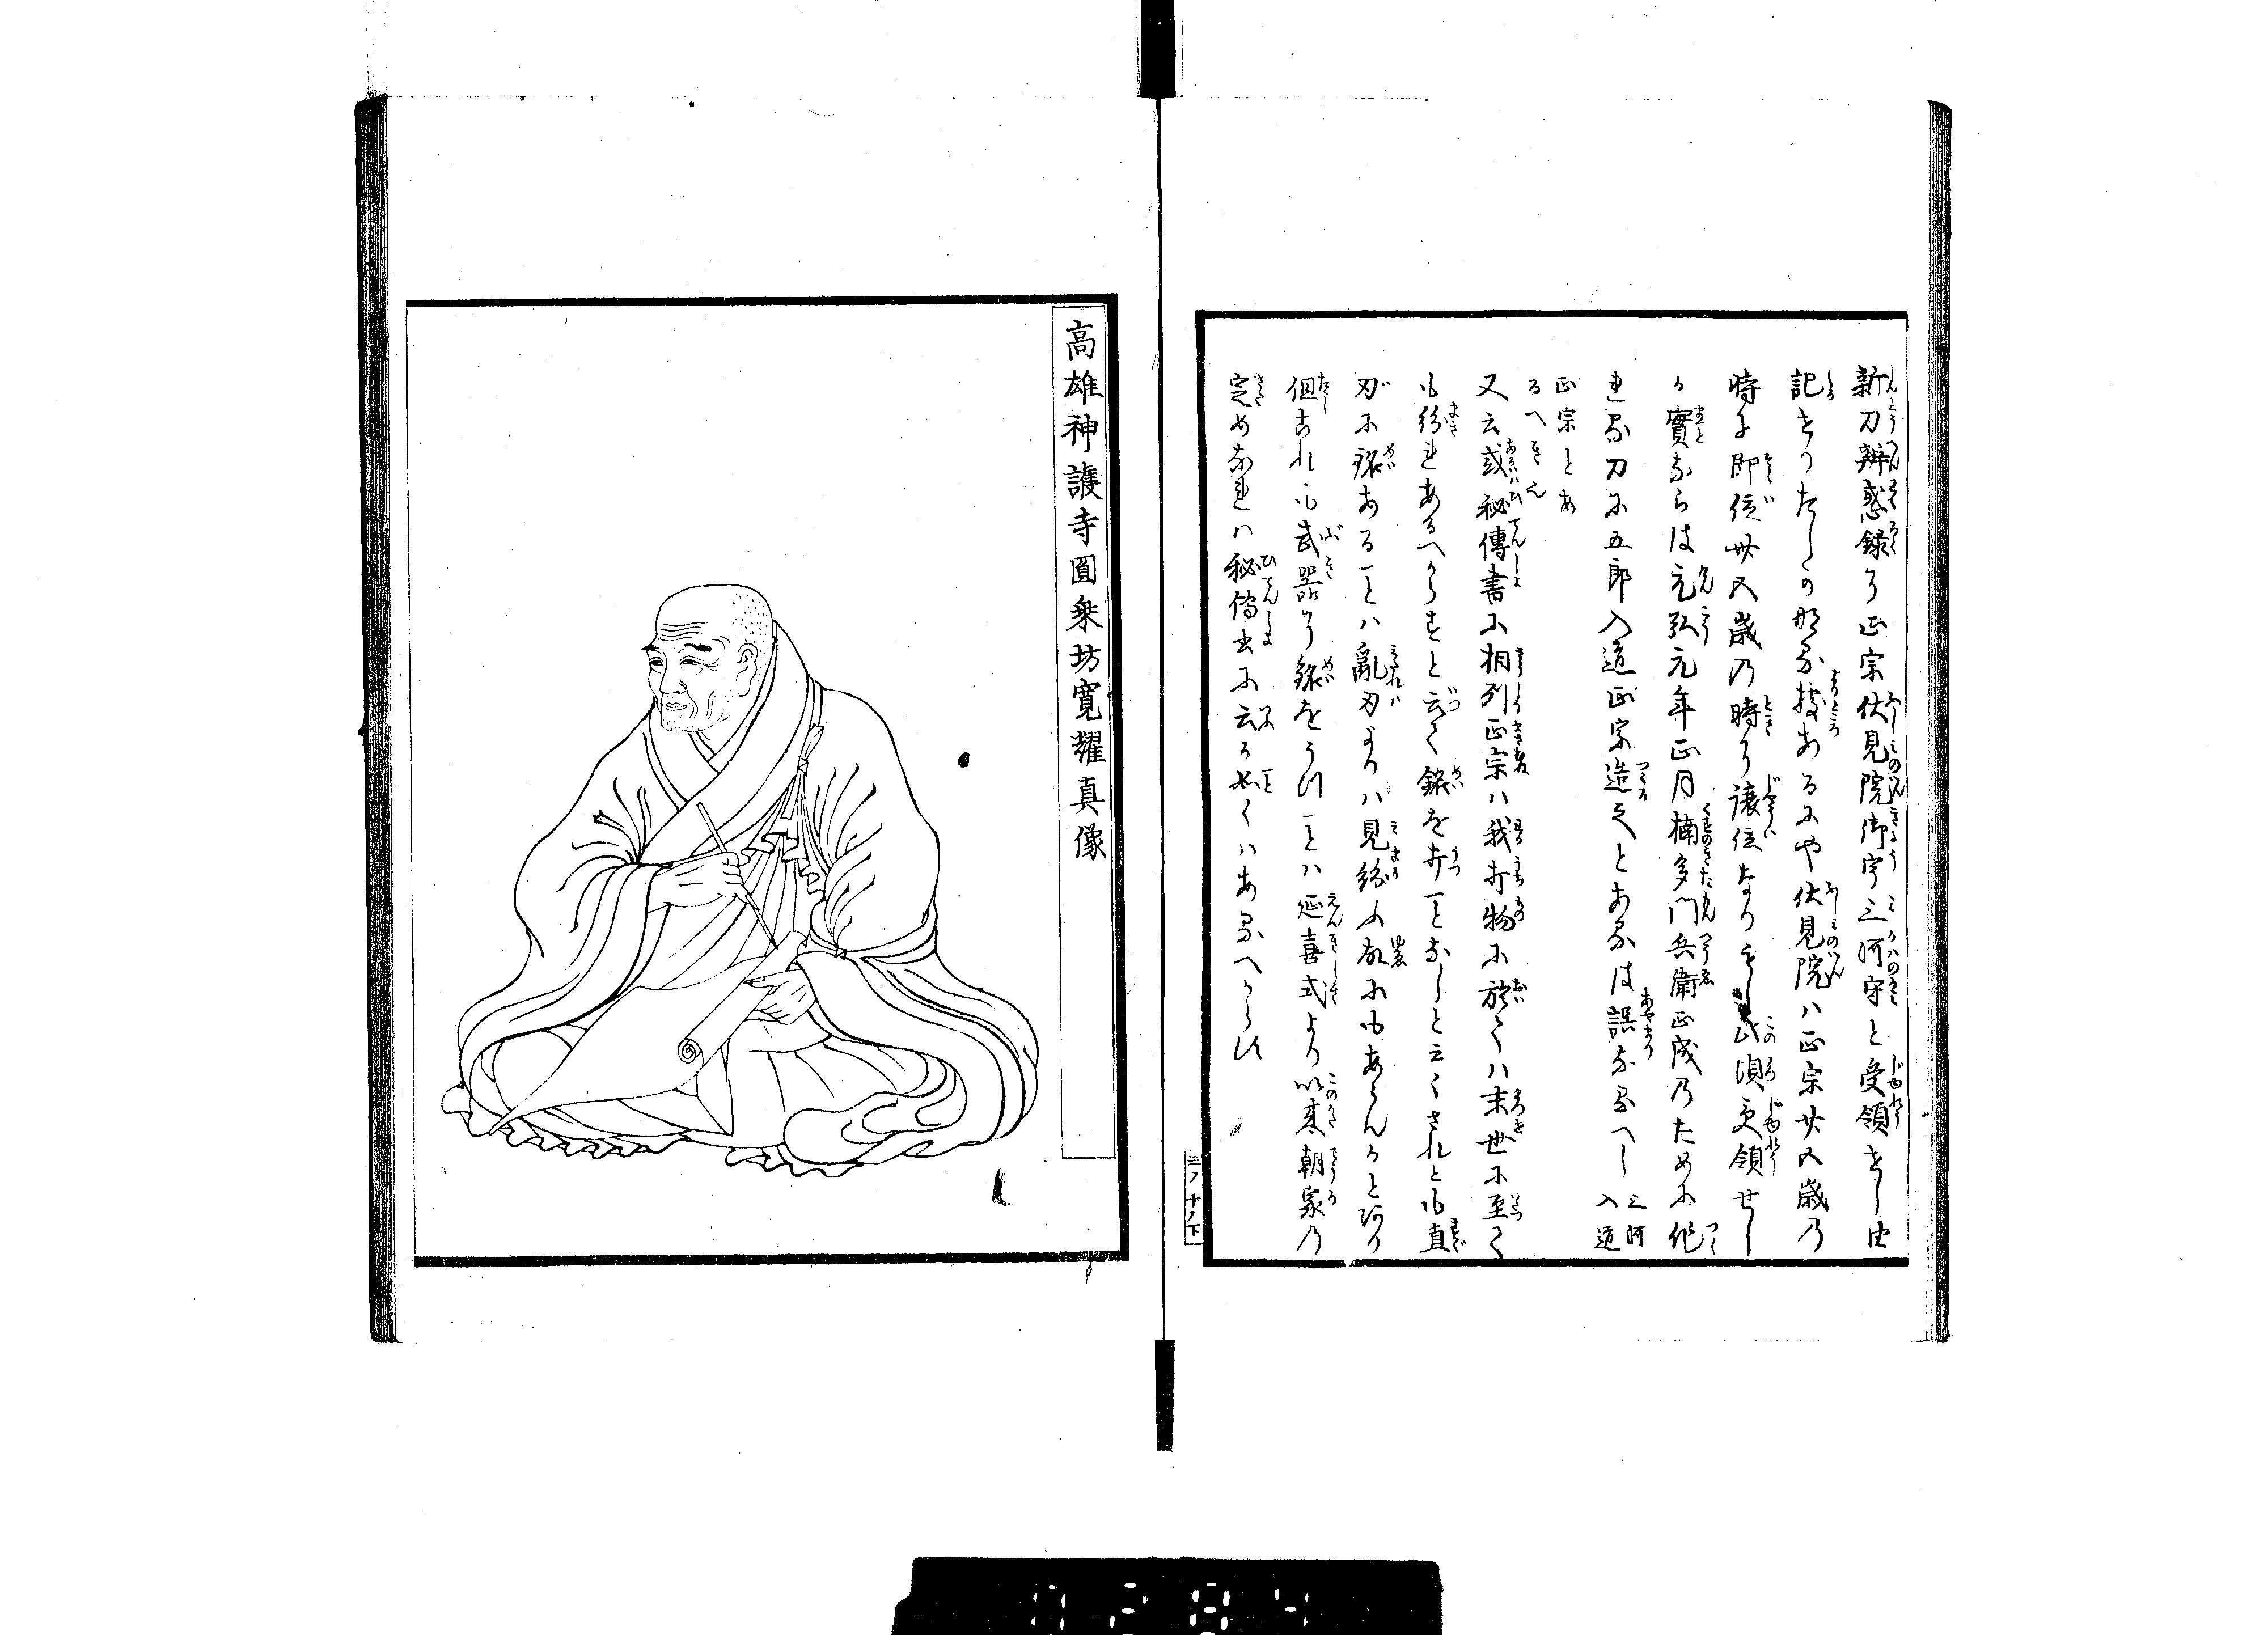 新刀辨惑録に正宗伏見院御宇三河守と受領せし由
記せりたしかなる據あるにや伏見院ハ正宗廿五歳の
時に即位丗五歳の時に讓位なり此頃受領せし
か實ならは元弘元年正月楠多門兵衛正成のために作
れる刀に五郎入道正宗造之とあるは誤なるへし三河入道
正宗とあるへきを
又云或秘傳書に相列正宗ハ我打物に於てハ末世に至て
も紛れあるへからすと云て銘を打ことなしと云々されとも直
刃に銘あることハ亂刃よりハ見紛ふ故にもあらんかと
但古れも武器に銘をうつことハ延喜式より以来朝家の
定めなれハ秘傳書に云る如くハあるへからす
三ノ十ノ下
高雄神護寺圓乗坊寛耀真像
1284